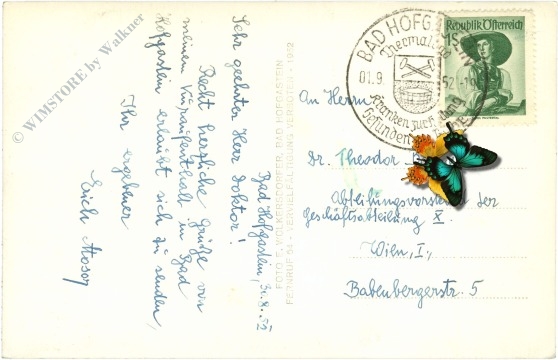 Bad Hofgastein, 31.8.52
Sehr geehrter Herr Doktor!
Recht herzliche Grüße von
meinem Kuraufenthalt in Bad
Hofgastein erlaubt sich zu senden,
Ihr ergebener
Erich Moser
FOTO E. WOLKERSDORFER, BAD HOFGASTEIN
FERNRUF 54 - VERVIELFÄLTIGUNG VERBOTEN - 1952
BAD HOFGA
Thermalbad
01.9. 52
Kranken zur
Gesunden
Republik Österreich
1S
An Herrn
Dr. Theodor
Abteilungsvorsteher der
Geschäftsabteilung X
Wien, I.,
Babenbergerstr. 5
© WIMSTORE by Walkner